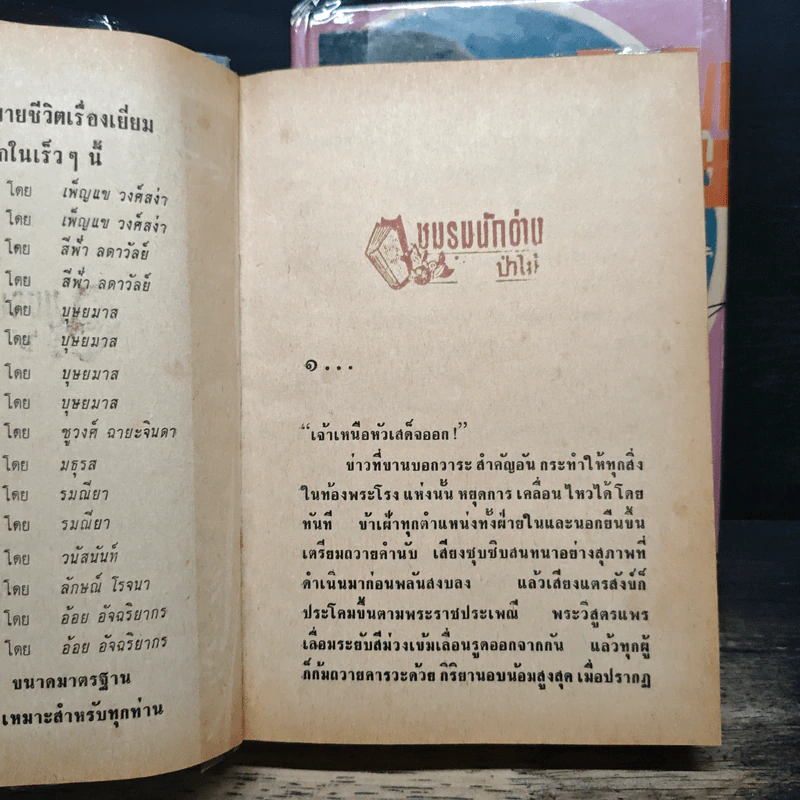 ายชีวิตเรื่องเยี่ยม
ในเร็วๆ นี้
โดย เพ็ญแข วงศ์สง่า
โดย เพ็ญแข วงศ์สง่า
โดย สีฟ้า ลดาวัลย์
โดย สีฟ้า ลดาวัลย์
โดย บุษยมาส
โดย บุษยมาส
โดย บุษยมาส
โดย บุษยมาส
โดย ชูวงศ์ ฉายะจินดา
โดย มธุรส
โดย รมณียา
โดย รมณียา
โดย วนัสนันท์
โดย ลักษณ์ โรจนา
โดย อ้อย อัจฉริยากร
โดย อ้อย อัจฉริยากร
ขนาดมาตรฐาน
เหมาะสำหรับทุกท่าน
ชมรมนักอ่าน
ป่าไม้
๑...
“เจ้าเหนือหัวเสด็จออก!”
ข่าวที่ขานบอกวาระ สำคัญอัน กระทำให้ทุกสิ่ง
ในท้องพระโรง แห่งนั้น หยุดการ เคลื่อน ไหวได้ โดย
ทันที ข้าเฝ้าทุกตำแหน่งทั้งฝ่ายในและนอกยืนขึ้น
เตรียมถวายคำนับ เสียงซุบซิบสนทนาอย่างสุภาพที่
ดำเนินมาก่อนพลันสงบลง แล้วเสียงแตรสังข์ก็
ประโคมขึ้นตามพระราชประเพณี พระวิสูตรแพร
เลื่อมระยับสีม่วงเข้มเลื่อนรูดออกจากกัน แล้วทุกผู้
ก็ก้มถวายคารวะด้วย กิริยานอบน้อมสูงสุด เมื่อปรากฏ